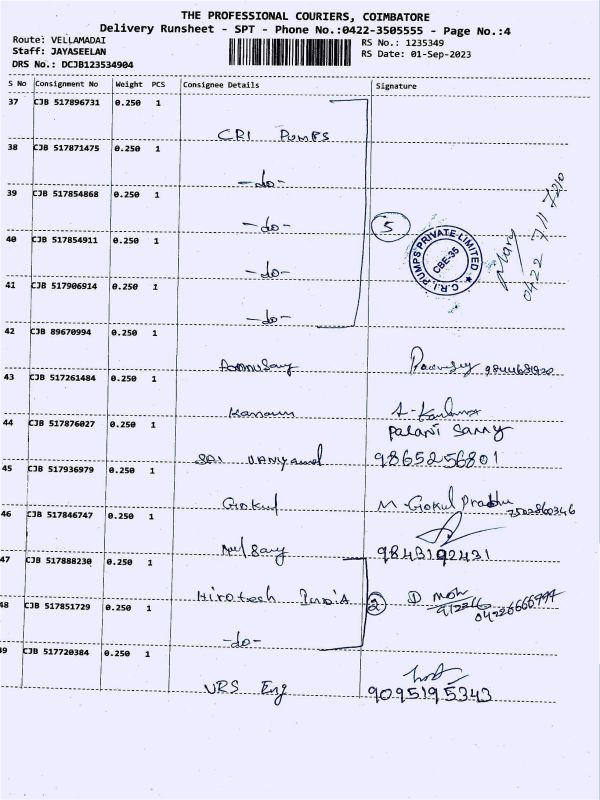 THE PROFESSIONAL COURIERS, COIMBATORE
Delivery Runsheet - SPT - Phone No.:0422-3505555 - Page No.:4
Route: VELLAMADAI
Staff: JAYASEELAN
DRS No.: DCJB123534904
RS No.: 1235349
RS Date: 01-Sep-2023
S No Consignment No Weight PCS Consignee Details Signature
37 CJB 517896731 0.250 1
CRI Pumps
38 CJB 517871475 0.250 1
-do-
39 CJB 517854868 0.250 1
-do-
5
C.R.I. PUMPS PRIVATE LIMITED
CBE-35
Mary
0422 711 7210
40 CJB 517854911 0.250 1
-do-
41 CJB 517906914 0.250 1
-do-
42 CJB 89670994 0.250 1
43 CJB 517261484 0.250 1
44 CJB 517876027 0.250 1
Palani Samy
SAI
9865256801
45 CJB 517936979 0.250 1
Gokul M. Gokul Prabhu
7502860346
46 CJB 517846747 0.250 1
9843192431
47 CJB 517888230 0.250 1
Hirotech India 2
48 CJB 517851729 0.250 1
-do-
49 CJB 517720384 0.250 1
VRS Eng 9095195343